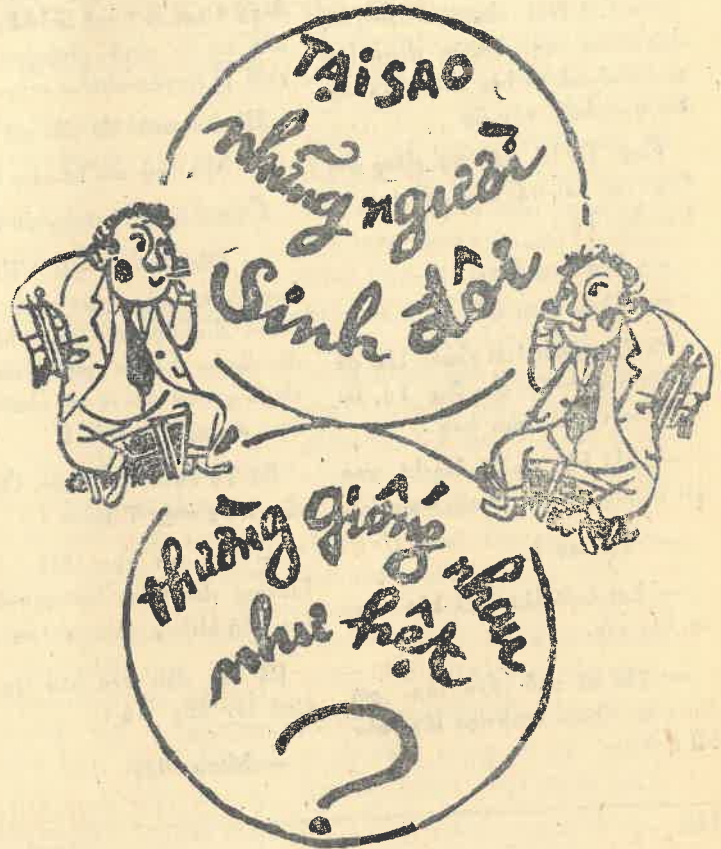 TẠI SAO
những người
Sinh đôi
thường giống nhau
như hệt
?